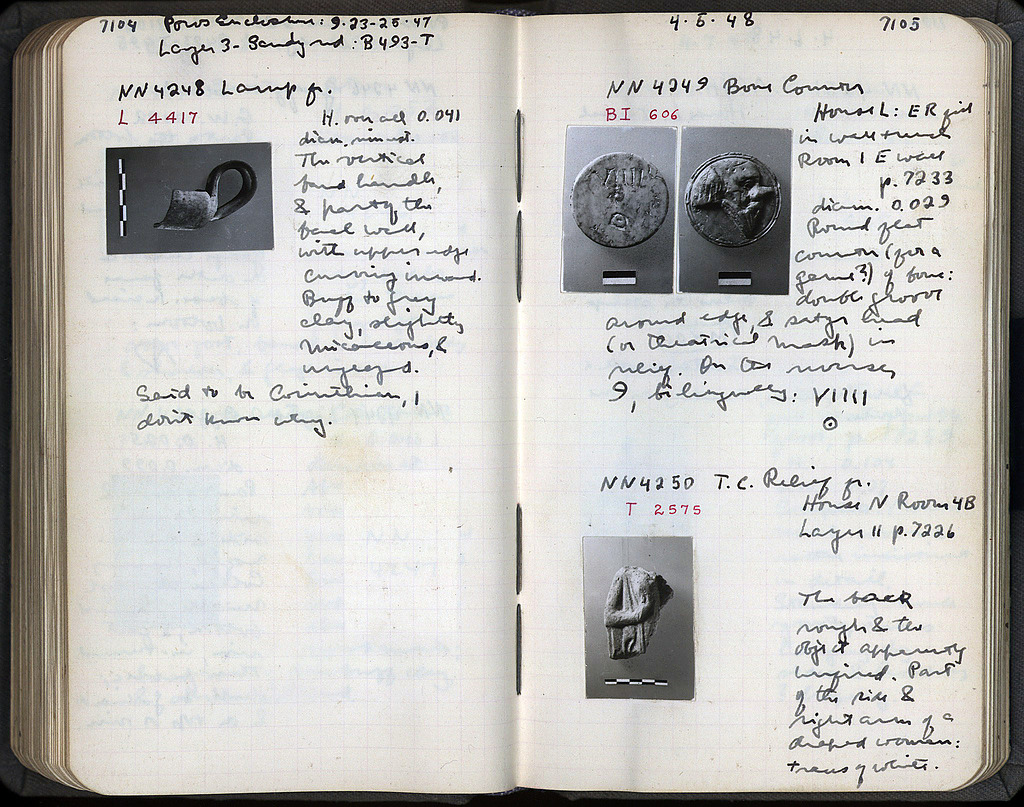 7104 Poros Enclosure: 9-23-25-47
Layer 3 - Sandy rd: B493-T
NN4248 Lamp fr.
L 4417
H. overall 0.041
diam. nin est.
The vertical
band handle,
& part of the
back wall,
with upper edge
curving inward.
Buff to grey
clay, slightly
micaceous, &
unglazed.
Said to be Corinthian, I
don't know why.
4-5-48 7105
NN4249 Bone Counter
BI 606
House L: ER
in wall trench
Room 1 E wall
p.7233
diam. 0.029
Round flat
counter (for a
game?) of bone:
double groove
around edge, & satyr head
(or theatrical mask) in
relief. On the reverse
9, bilingually: VIIII
⊙
NN4250 T.C. Relief fr.
T 2575
House N Room 4B
Layer II p.7226
The back
rough & the
object apparently
unfired. Part
of the side &
right arm of a
draped woman:
traces of white.
VIIII